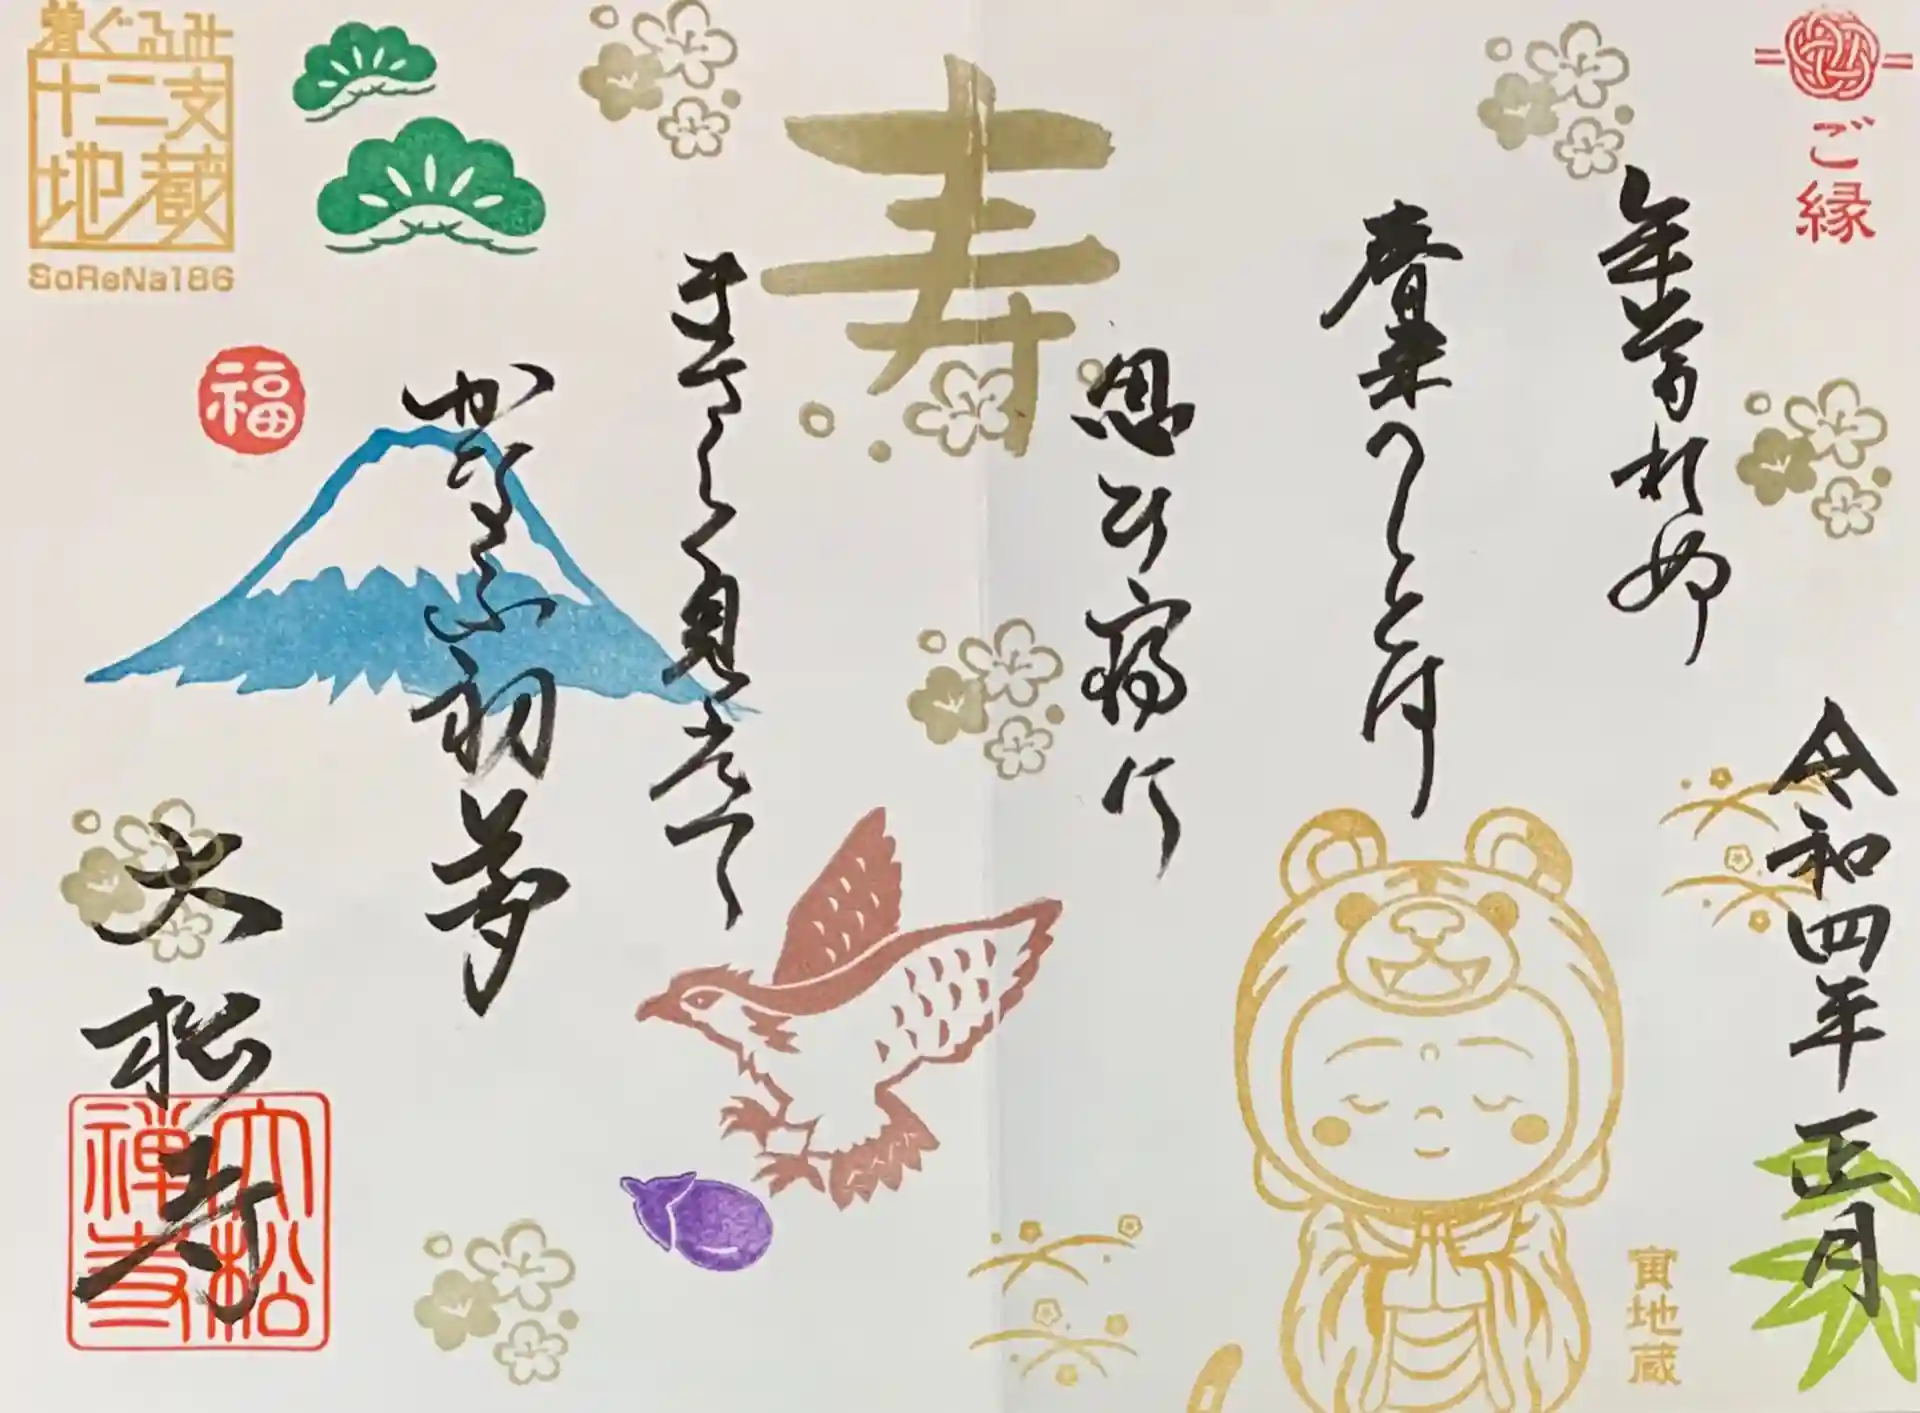 ご縁
令和四年正月
年暮れぬ
春来へしとは
思ひ寝に
まさしく見えて
かなふ初夢
大松寺
寿
寅地蔵
福
着ぐるみ
十二支
地蔵
SoReNa186
大松
禅寺